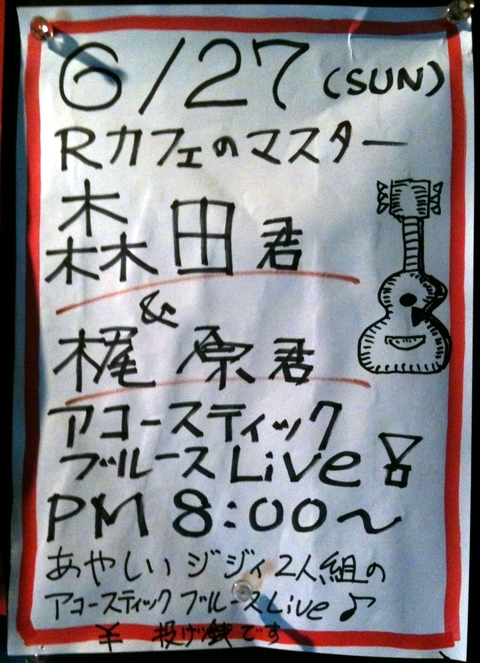 6/27 (SUN)
Rカフェのマスター
森田君
&
梶原君
アコースティック
ブルースLive!
PM 8:00〜
あやしいジジィ2人組の
アコースティックブルースLive♪
¥ 投げ銭です